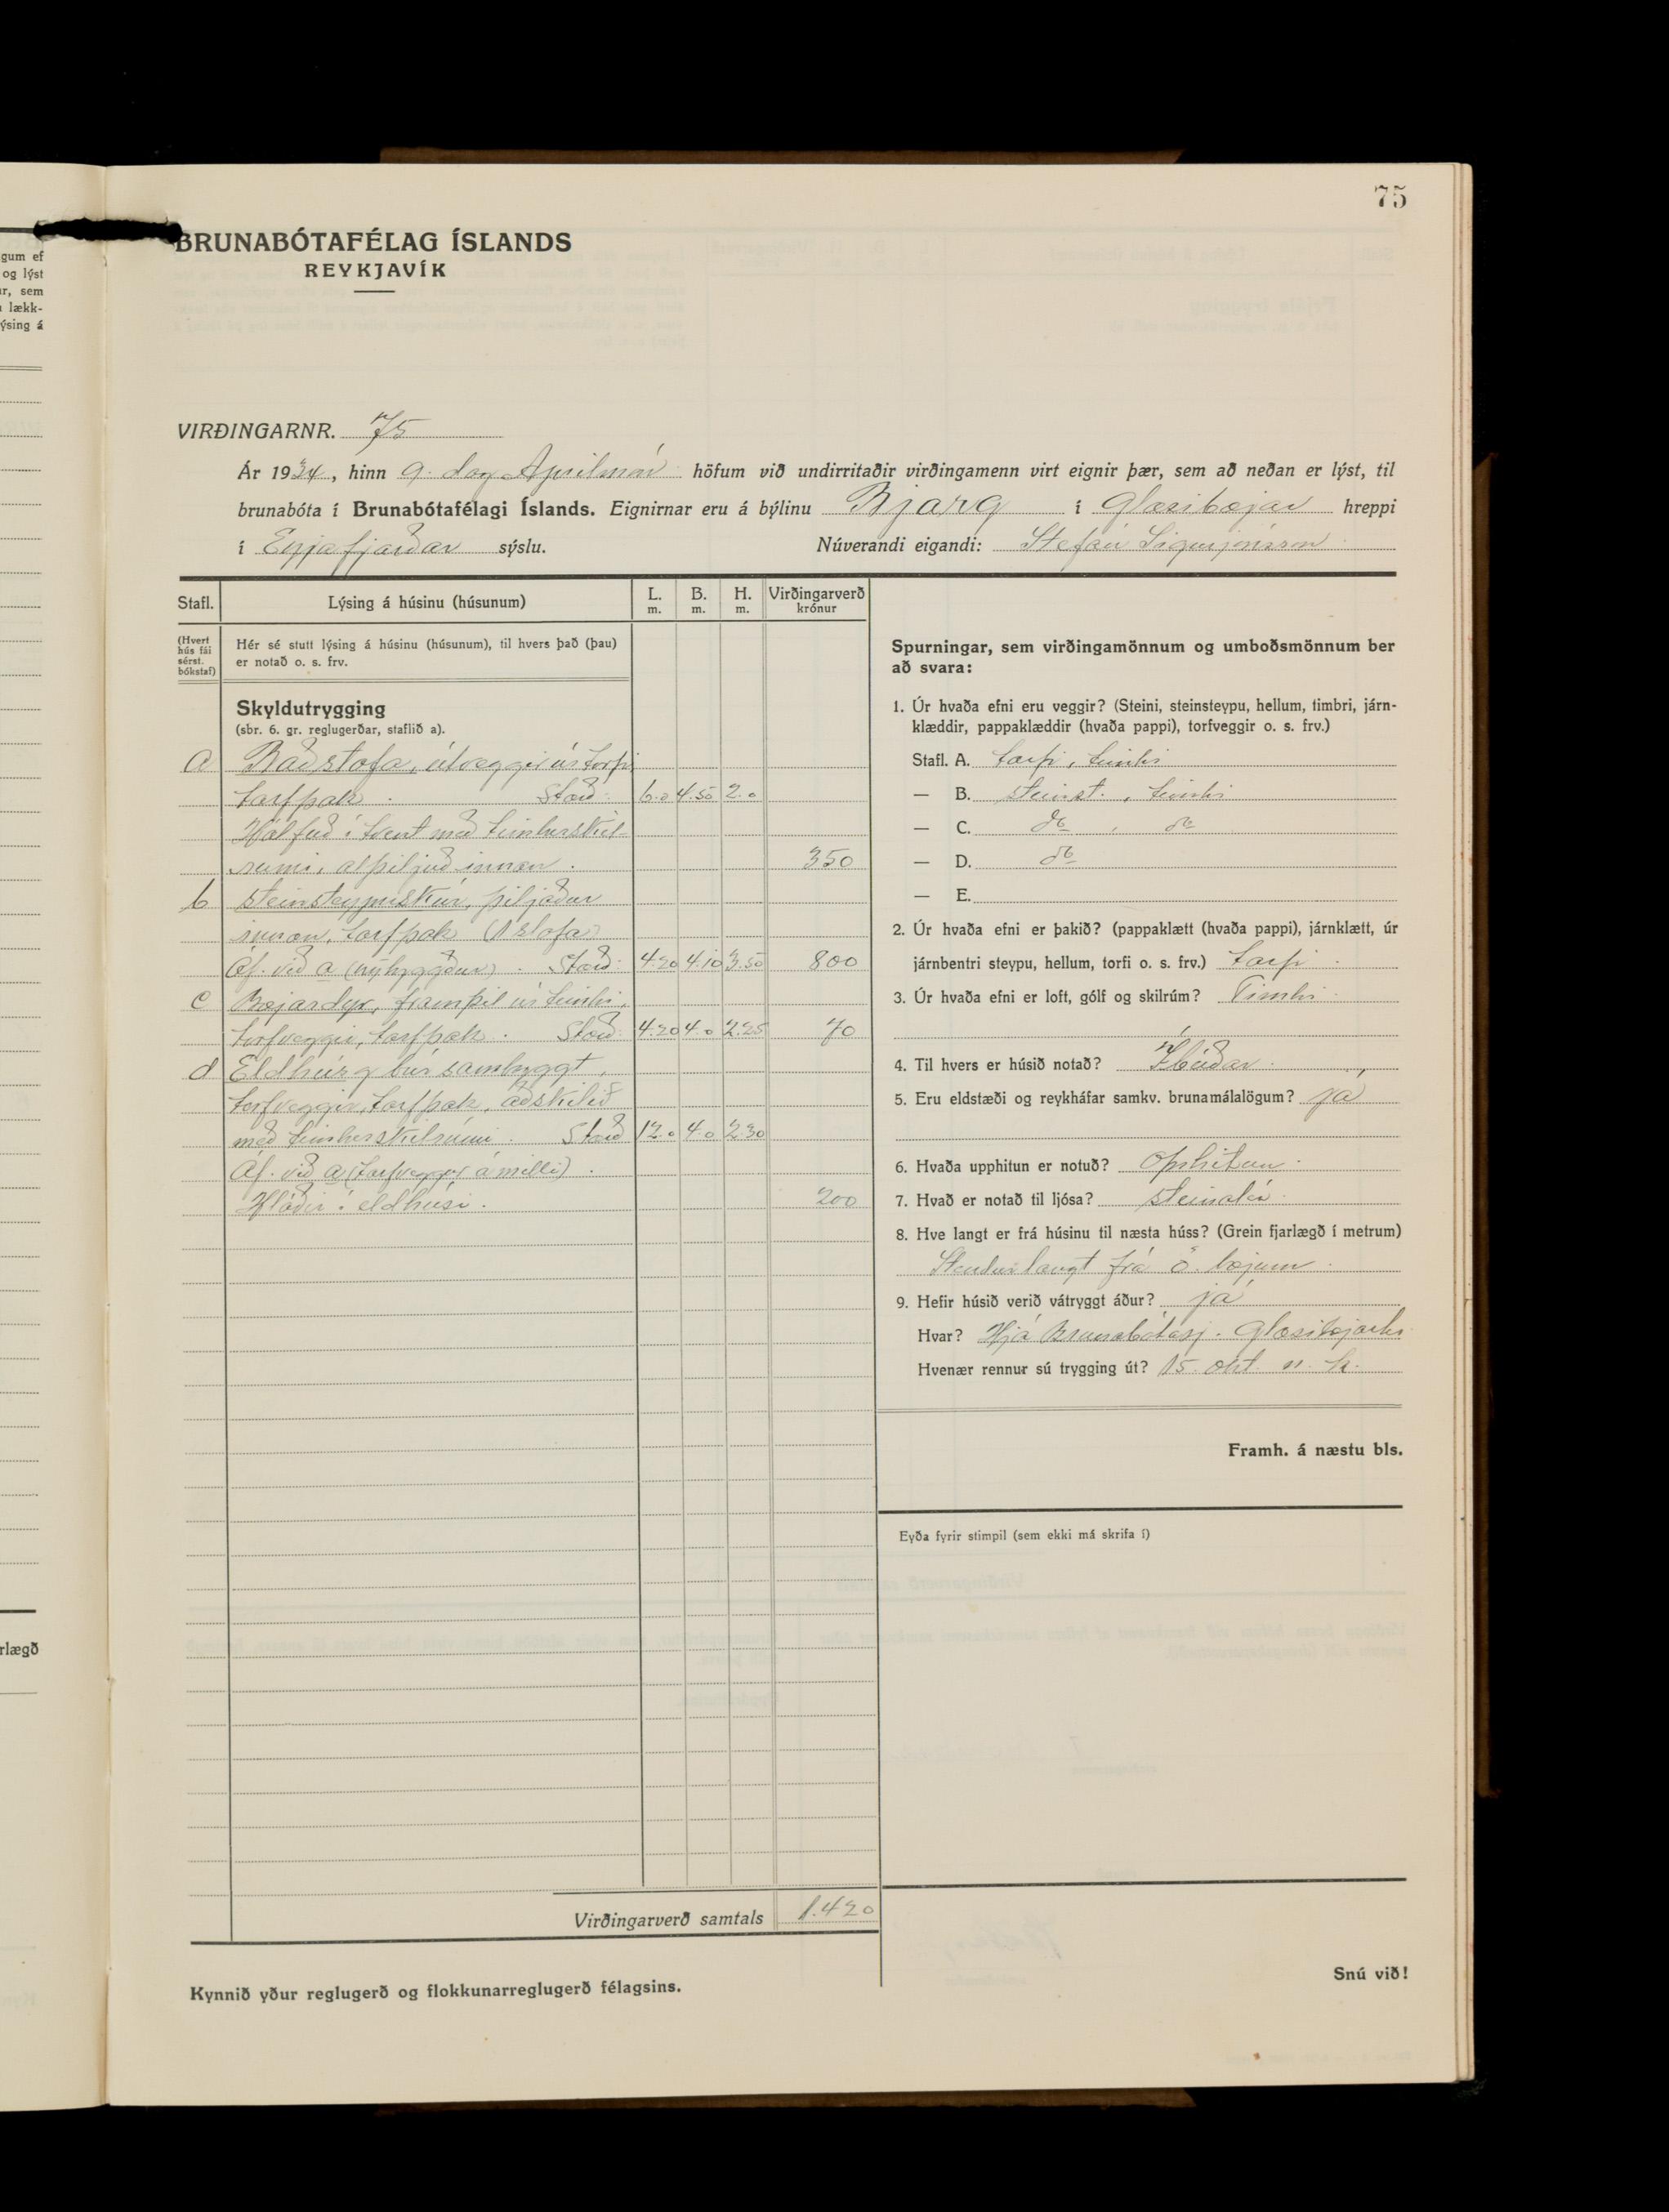 75
gum ef
og lýst
ır, sem
lækk-
ýsing á
rlægð
BRUNABÓTAFÉLAG ÍSLANDS
REYKJAVÍK
VIRÐINGARNR. 75
Ár 1934, hinn 9. dag Aprilmán höfum við undirritaðir virðingamenn virt eignir þær, sem að neðan er lýst, til
brunabóta í Brunabótafélagi Íslands. Eignirnar eru á býlinu Bjarg í Glæsibæjar hreppi
í Eyjafjarðar sýslu. Núverandi eigandi: Stefán Sigurjónsson
Stafl. Lýsing á húsinu (húsunum) L. m. B. m. H. m. Virðingarverð krónur
(Hvert hús fái sérst. bókstaf)
Hér sé stutt lýsing á húsinu (húsunum), til hvers það (þau)
er notað o. s. frv.
Skyldutrygging
(sbr. 6. gr. reglugerðar, staflið a).
a Baðstofa, útveggir úr torfi
torfþak. Stærð: 6.0 4.50 2.0
Hólfuð í tvent með timburskil-
rumi, alþiljuð innan. 350
b steinsteypuskúr, þiljaður
innan, torfþak (1 stofa)
Áf. við a (nýbyggður). Stærð: 4.20 4.10 3.50 800
c Bæjardyr, framþil úr timbri,
torfveggir, torfþak. Stærð: 4.20 4.0 2.25 70
d Eldhús og búr sambyggt,
torfveggir, torfþak, aðskilið
með timburskilrúmi. Stærð 12.0 4.0 2.30
Áf. við a (torfveggur á milli).
Hlóðir í eldhúsi. 200
Virðingarverð samtals 1.420
Kynnið yður reglugerð og flokkunarreglugerð félagsins.
Spurningar, sem virðingamönnum og umboðsmönnum ber
að svara:
1. Úr hvaða efni eru veggir? (Steini, steinsteypu, hellum, timbri, járn-
klæddir, pappaklæddir (hvaða pappi), torfveggir o. s. frv.)
Stafl. A. torfi, timbri
— B. steinst., timbri
— C. do, do
— D. do
— E.
2. Úr hvaða efni er þakið? (pappaklætt (hvaða pappi), járnklætt, úr
járnbentri steypu, hellum, torfi o. s. frv.) torfi.
3. Úr hvaða efni er loft, gólf og skilrúm? Timbri
4. Til hvers er húsið notað? Íbúðar.
5. Eru eldstæði og reykháfar samkv. brunamálalögum? já
6. Hvaða upphitun er notuð? Ofnhitun.
7. Hvað er notað til ljósa? steinolía
8. Hve langt er frá húsinu til næsta húss? (Grein fjarlægð í metrum)
Stendur langt frá ö. bæjum.
9. Hefir húsið verið vátryggt áður? já
Hvar? Hjá Brunabótasj. Glæsibæjarhr
Hvenær rennur sú trygging út? 15. okt. n. k.
Framh. á næstu bls.
Eyða fyrir stimpil (sem ekki má skrifa í)
Snú við!